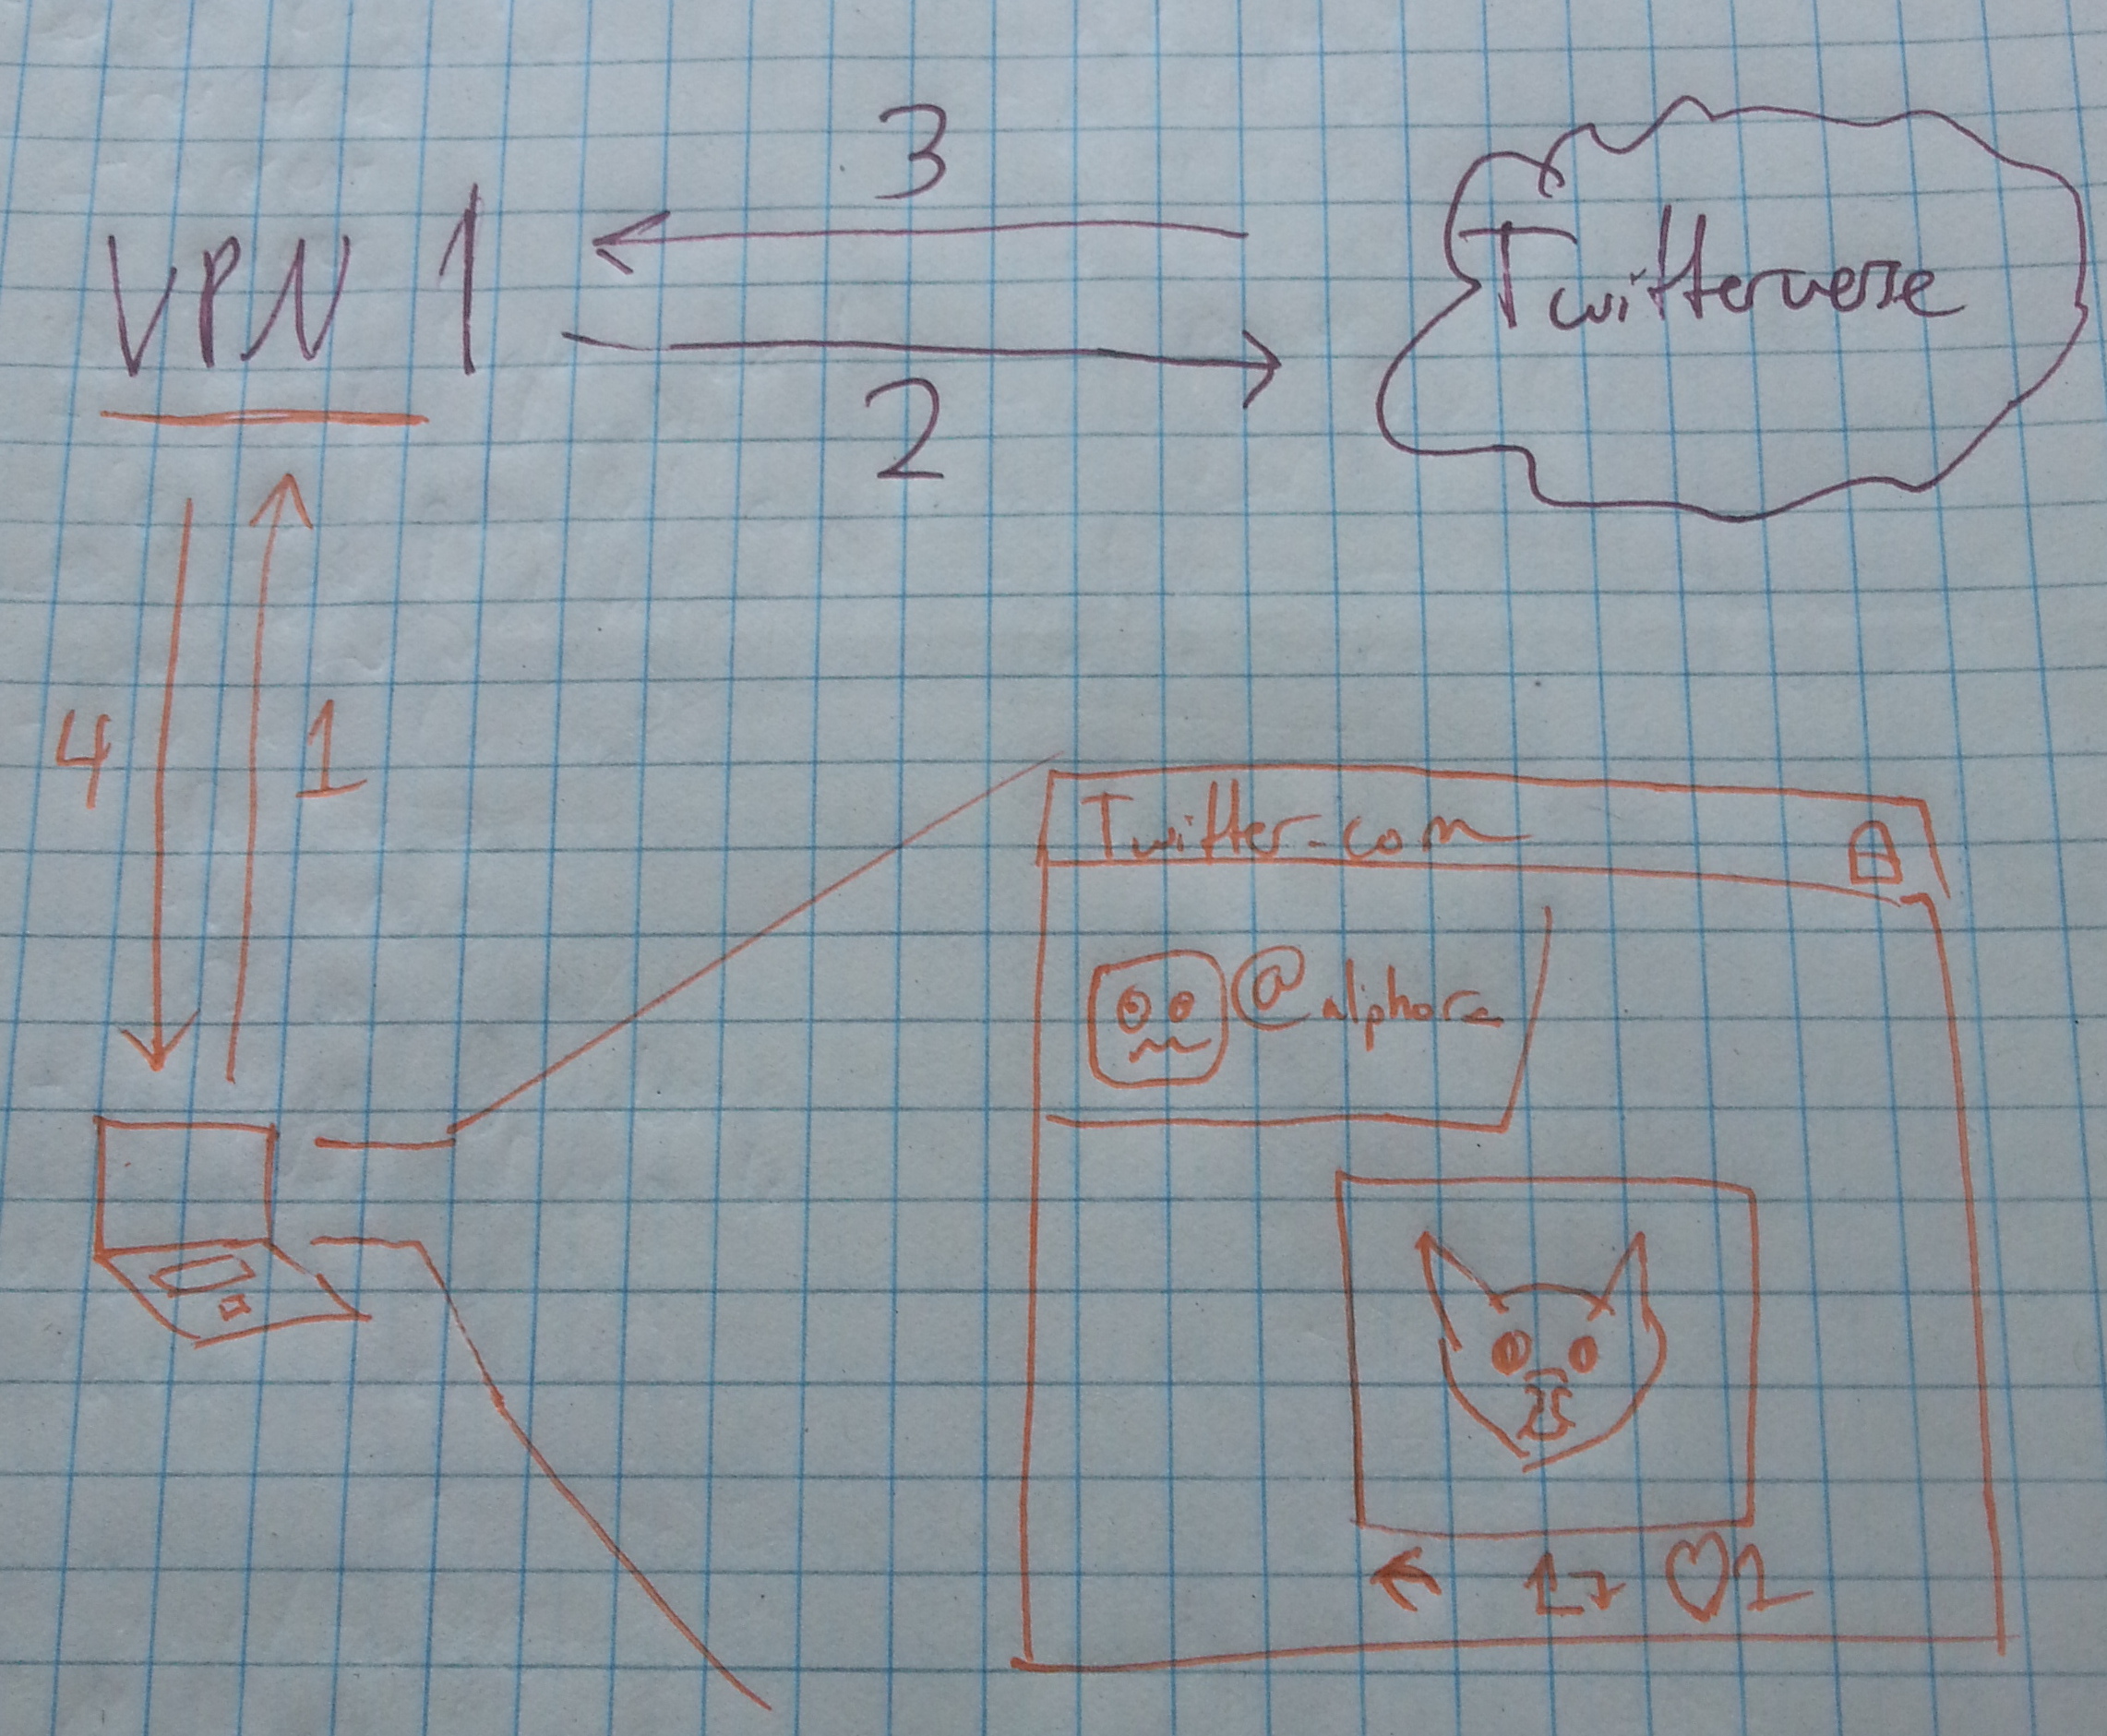 3
VPN 1
Twitterverse
2
4
1
Twitter.com
@alphora
1